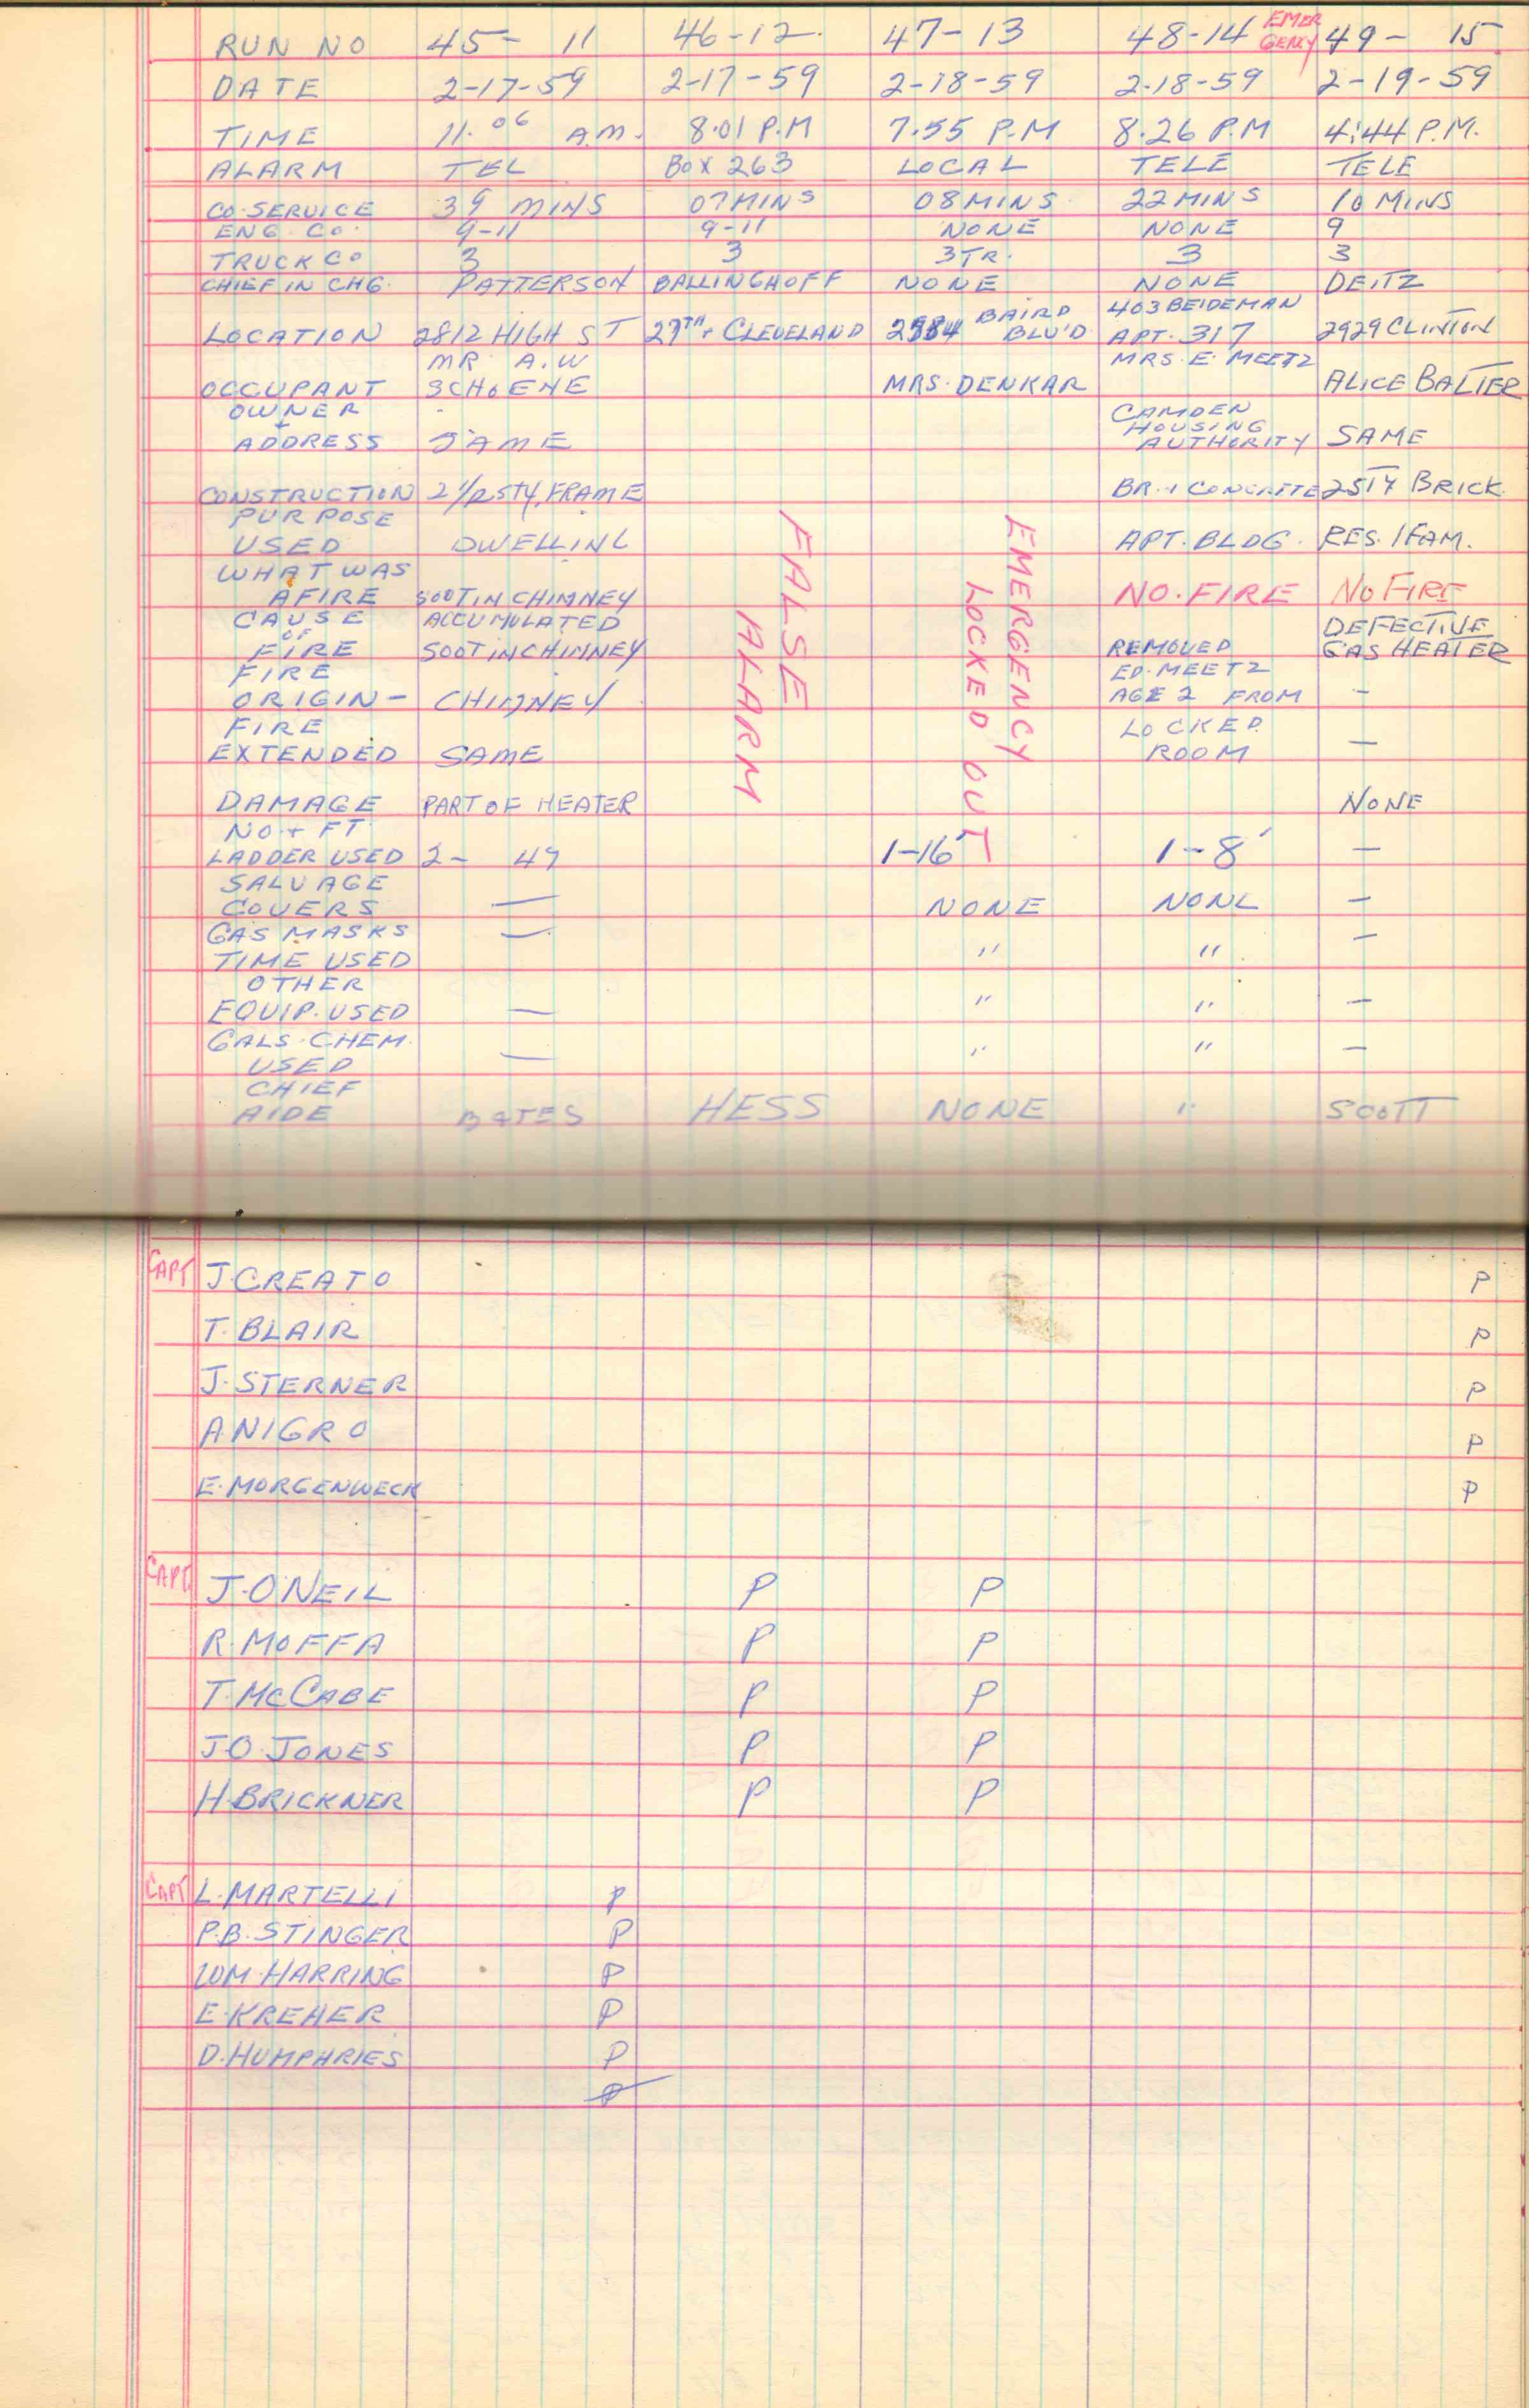 RUN NO 45- 11 46-12. 47-13 48-14 EMER GENCY 49- 15
DATE 2-17-59 2-17-59 2-18-59 2-18-59 2-19-59
TIME 11.06 A.M. 8.01 P.M 7.55 P.M 8.26 P.M 4:44 P.M.
ALARM TEL BOX 263 LOCAL TELE TELE
CO. SERVICE 39 MINS 07 MINS 08 MINS. 22 MINS 10 MINS
ENG. CO. 9-11 9-11 NONE NONE 9
TRUCK CO 3 3 3TR. 3 3
CHIEF IN CHG. PATTERSON BALLINGHOFF NONE NONE DEITZ
LOCATION 2812 HIGH ST 27TH + CLEVELAND BAIRD BLV'D. 403 BEIDEMAN APT. 317 2929 CLINTON
OCCUPANT MR A.W SCHOENE MRS. DENKAR MRS. E. MEETZ ALICE BALTER
OWNER
+
ADDRESS SAME CAMDEN HOUSING AUTHORITY SAME
CONSTRUCTION 2 1/2 STY. FRAME BR. + CONCRETE 2STY BRICK
PURPOSE
USED DWELLING APT. BLDG. RES. 1 FAM.
WHAT WAS
AFIRE SOOT IN CHIMNEY NO. FIRE NO FIRE
CAUSE
OF
FIRE ACCUMULATED SOOT IN CHIMNEY REMOVED DEFECTIVE GAS HEATER
FIRE
ORIGIN- CHIMNEY ED. MEETZ AGE 2 FROM -
FIRE
EXTENDED SAME LOCKED ROOM —
FALSE
ALARM
EMERGENCY
LOCKED OUT
DAMAGE PART OF HEATER NONE
NO. + FT.
LADDER USED 2- 49 1-16' 1-8' —
SALVAGE
COVERS — NONE NONE —
GAS MASKS —
TIME USED " " —
OTHER
EQUIP. USED — " " —
GALS. CHEM.
USED — " " —
CHIEF
AIDE BATES HESS NONE " SCOTT
CAPT J. CREATO P
T. BLAIR P
J. STERNER P
A. NIGRO P
E. MORGENWECK P
CAPT. J. O'NEIL P P
R. MOFFA P P
T. McCABE P P
J.O. JONES P P
H. BRICKNER P P
CAPT L. MARTELLI P
P.B. STINGER P
WM. HARRING P
E. KREHER P
D. HUMPHRIES P
P